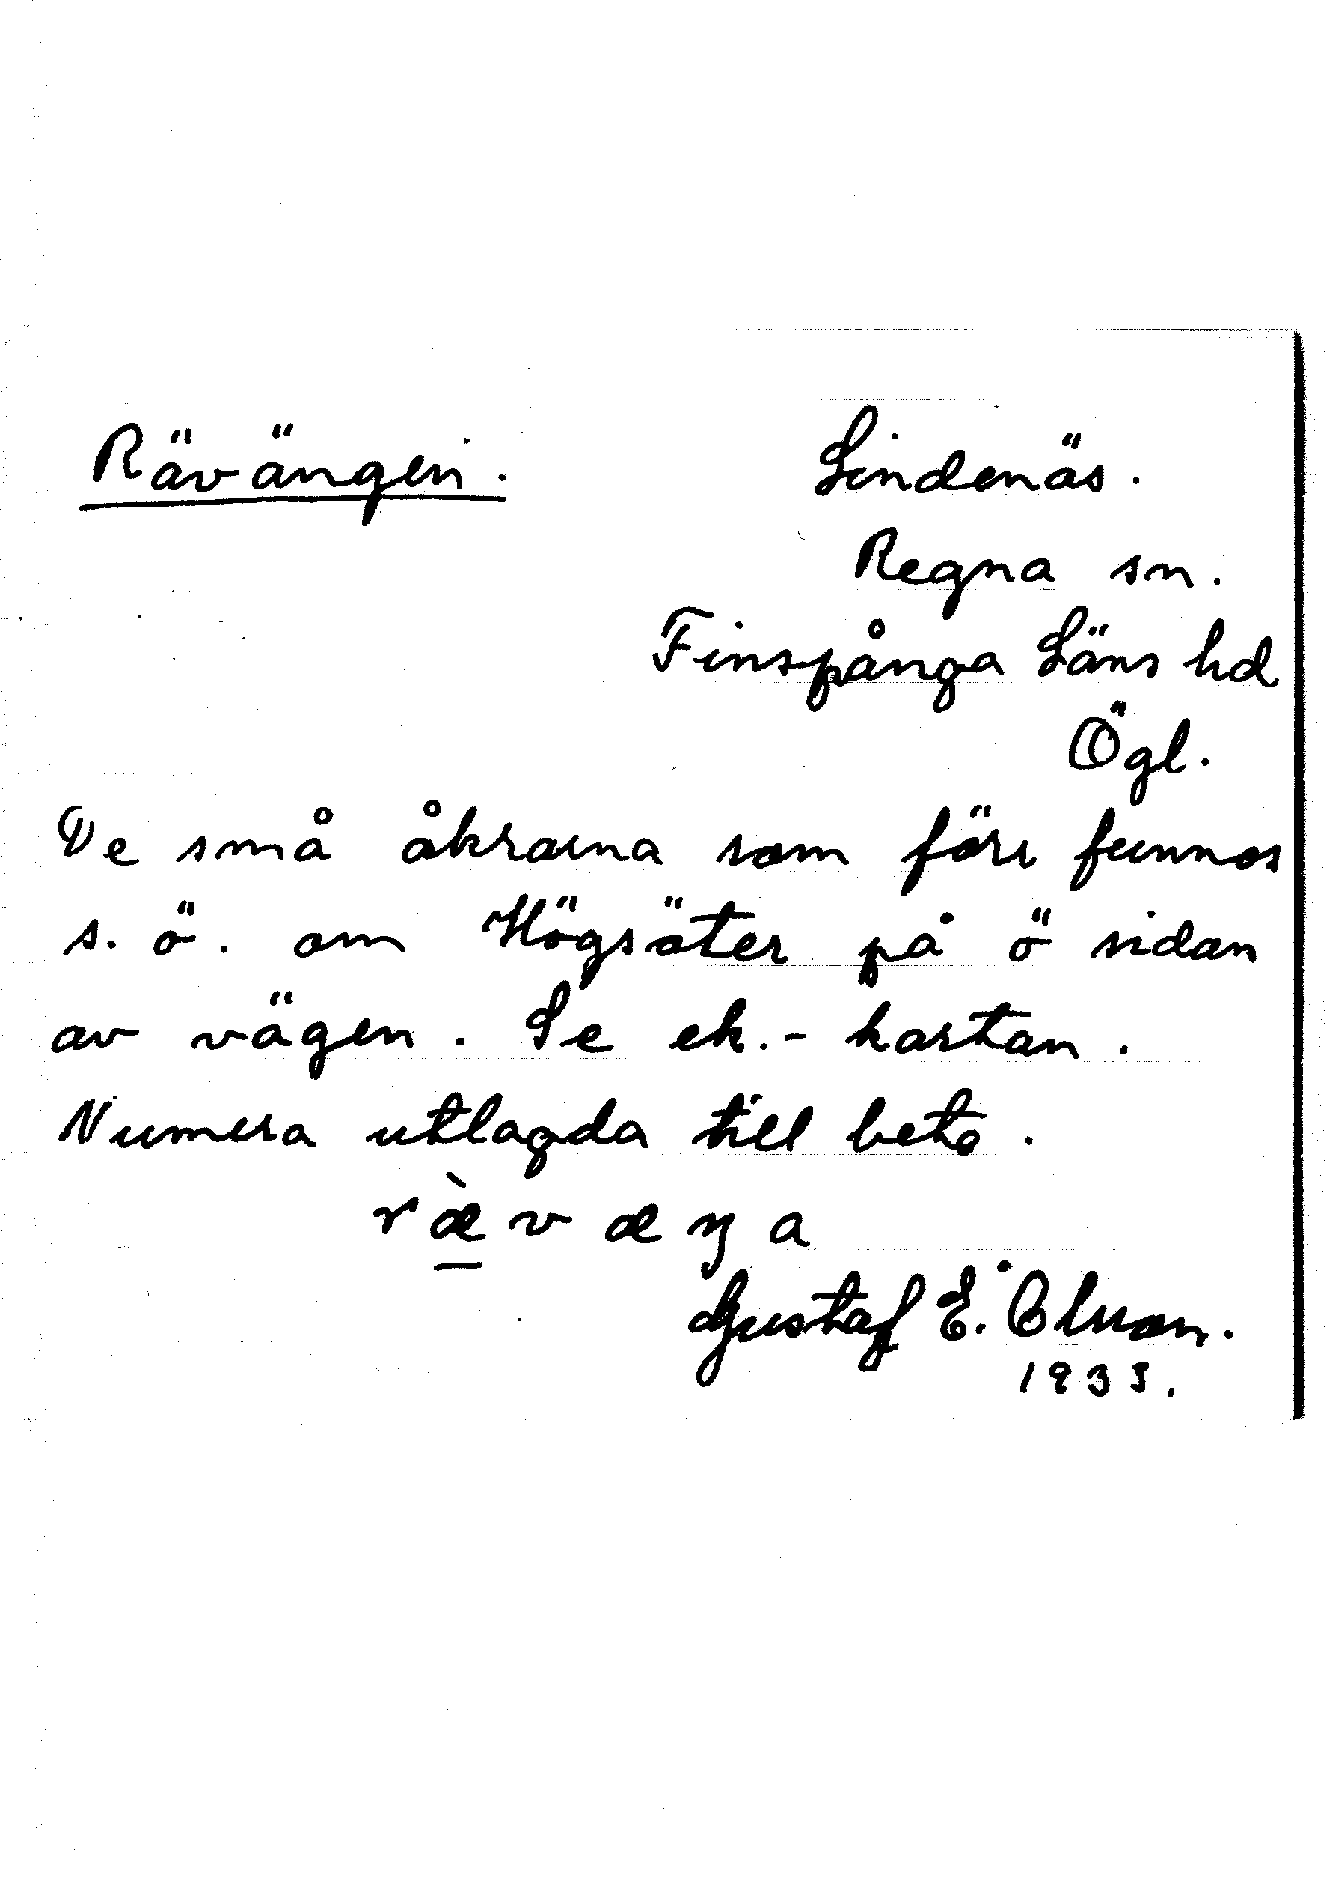 Rävängen.
Lindenäs.
Regna sn.
Finspånga Läns hd
Ögl.
De små åkrarna som förr funnos
s. ö. om Högsäter på ö sidan
av vägen. Se ek.-kartan.
Numera utlagda till bete.
ræ̀væŋa
Gustaf E.
193